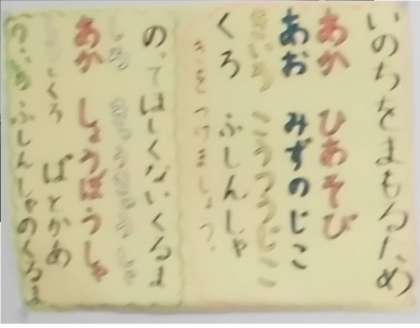 いのちをまもるため
あか ひあそび
あお みずのじこ
きいろ こうつうじこ
くろ ふしんしゃ
きをつけましょう。
のってはしくないくるま
しろ
あか しょうぼうしゃ
しろくろ ぱとかあ
のふしんしゃのくるま